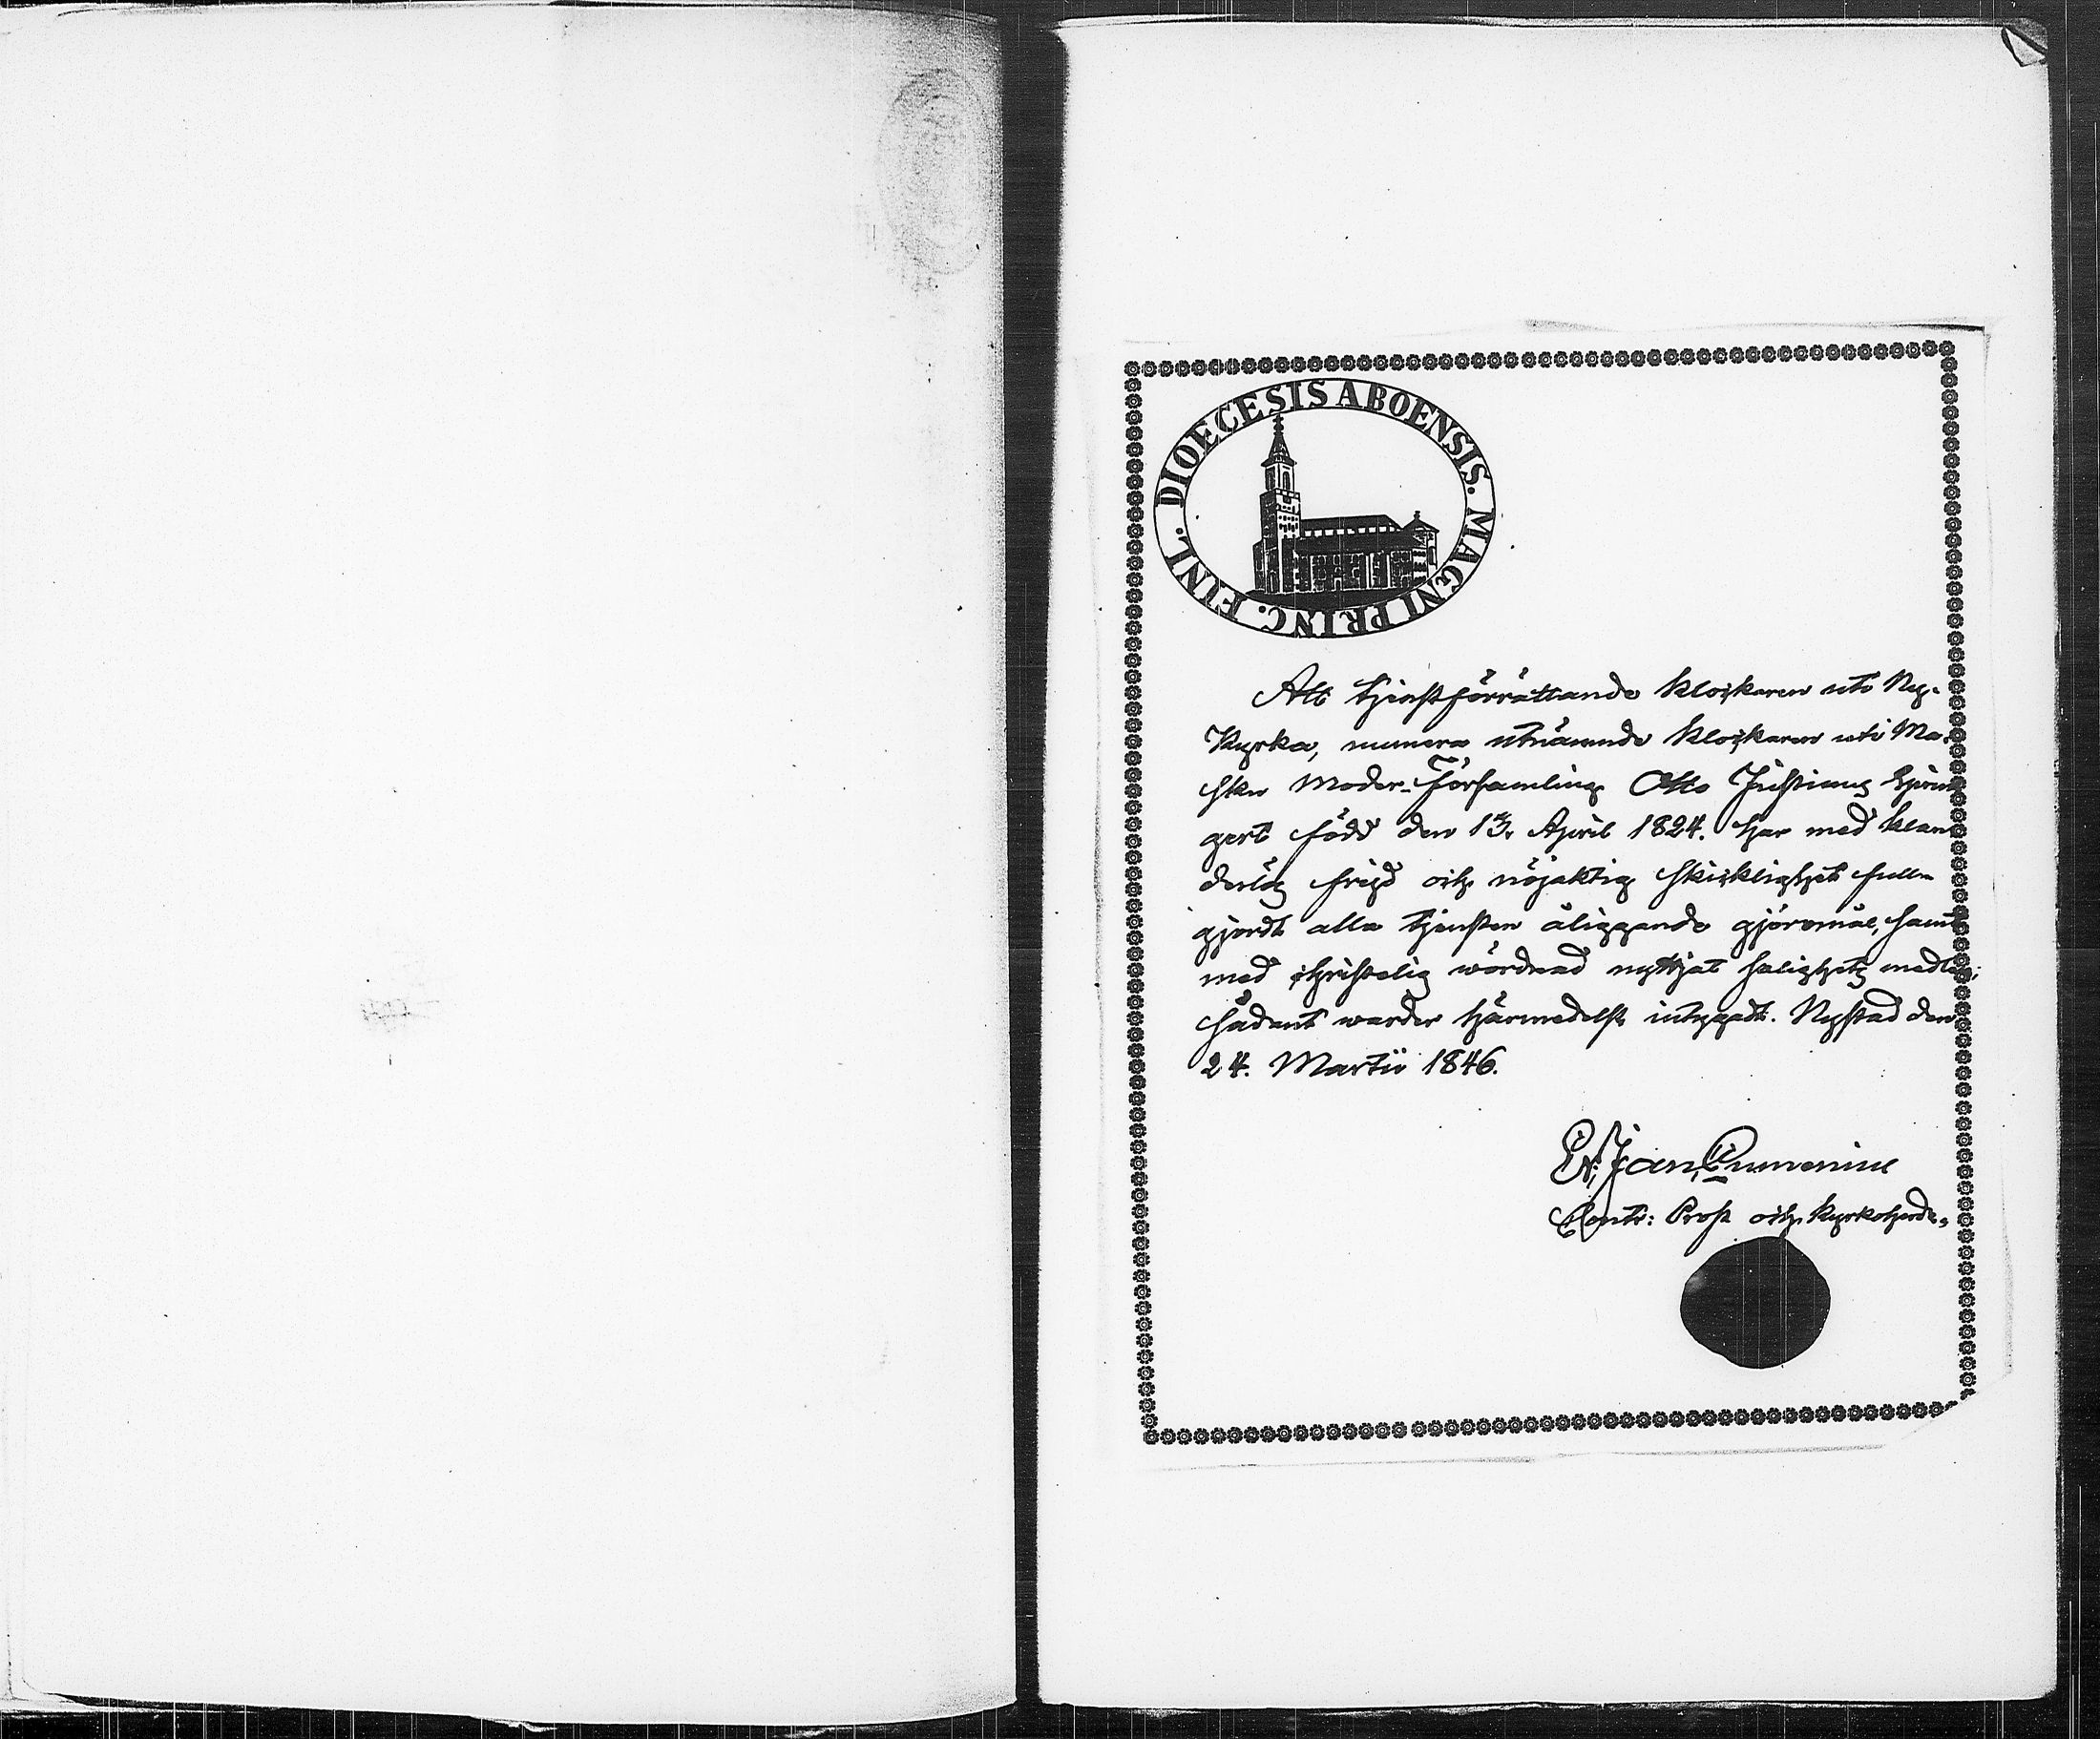 DIOECESIS ABOENSIS. MAGNI PRINC. FINL.
Att tjenstförrättande Klockaren uti Ny-
Kyrka, numera utnämnde Klockaren uti Ma-
sku Moder-Församling Otto Justianus
gert född den 13. April 1824. har med klan
derlög frejd och nöjaktig skicklighet full-
gjordt alla tjensten åliggande göromål, samt
med christelig wördnad nyttjat salighets medlen;
Sådant warder härmedelst intygadt. Nystad den
24. Martii 1846.
Jan
Contr: Prost och Kyrkoherde.